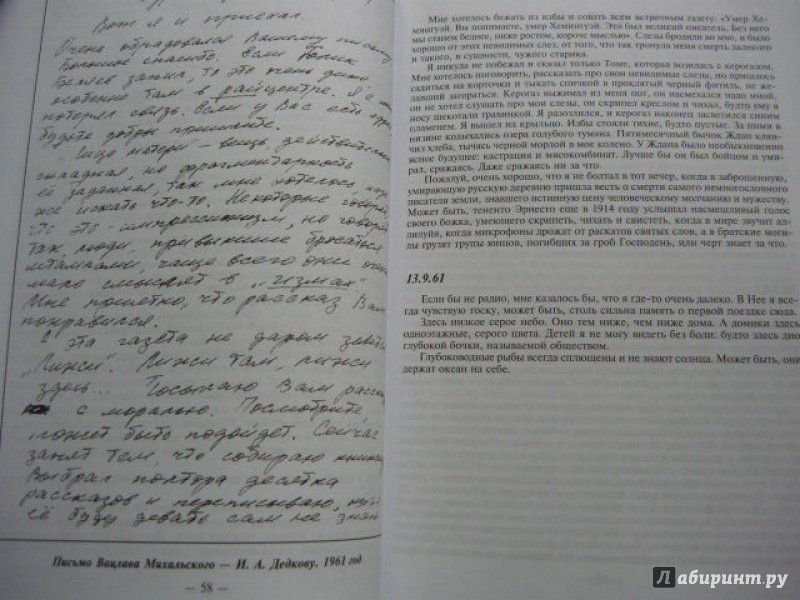 Вот я и приехал.
Очень обрадовался Вашему письму
Большое спасибо. Если Борик
Беляев запил, то это очень дико
особенно там в райцентре. Я с ним
потерял связь. Если у Вас есть адрес
будьте добры помогите.
Лицо матери – вещь, действительно
складная, но фрагментарность
её заданная, так мне хотелось,
же искать что-то. Некоторые говорят
что это – импрессионизм, но говорят
так, люди привыкшие бросаться
штампами, чаще всего они очень
мало смыслят в "измах"
Мне понятно, что рассказ Вам
понравился
А эта газета не даром зовётся
"Пижи". Пижи там, пижи
здесь... Посылаю Вам рассказ
с моралью. Посмотрите,
может быть подойдет. Сейчас
занят тем, что собираю книжку
Выбрал полтора десятка
рассказов и переписываю,
её буду девать сам не знаю
Письмо Вацлава Михальского — И. А. Дедкову. 1961 год
— 58 —
Мне хотелось бежать из избы и совать всем встречным газету: «Умер Хе-
мингуэй. Вы понимаете, умер Хемингуэй. Это был великий писатель. Без него
мы станем беднее, ниже ростом, короче мыслью». Слезы бродили во мне, и было
хорошо от этих невидимых слез, от того, что так тронула меня смерть далекого
и такого, в сущности, чужого старика.
Я никуда не побежал и сказал только Томе, которая возилась с керогазом.
Мне хотелось поговорить, рассказать про свои невидимые слезы, но пришлось
садиться на корточки и тыкать спичкой в проклятый черный фитиль, не же-
лавший загораться. Керогаз выжимал из меня гнев, он насмехался надо мной,
он не хотел слушать про мои слезы, он скрипел креслом и чихал, будто ему в
носу щекотали травинкой. Я разозлился, и керогаз наконец засветился синим
пламенем. Я вышел на крыльцо. Избы стояли тихие, будто пустые. За ними в
низине колыхались озера голубого тумана. Пятимесячный бычок Ждан клян-
чил хлеба, тычась черной мордой в мое колено. У Ждана было необыкновенно
ясное будущее: кастрация и мясокомбинат. Лучше бы он был бойцом и уми-
рал, сражаясь. Даже сражаясь ни за что.
Пожалуй, очень хорошо, что я не болтал в тот вечер, когда в заброшенную,
умирающую русскую деревню пришла весть о смерти самого немногословного
писателя земли, знавшего истинную цену человеческому молчанию и мужеству.
Может быть, тененто Эрнесто еще в 1914 году услышал насмешливый голос
своего божка, умеющего скрипеть, чихать и свистеть, когда в мире звучит ал-
лилуйя, когда микрофоны дрожат от раскатов святых слов, а в братские моги-
лы грузят трупы юнцов, погибших за гроб Господень, или черт знает за что.
13.9.61
Если бы не радио, мне казалось бы, что я где-то очень далеко. В Нее я все-
гда чувствую тоску, может быть, столь сильна память о первой поездке сюда.
Здесь низкое серое небо. Оно тем ниже, чем ниже дома. А домики здесь
одноэтажные, серого цвета. Детей я не могу видеть без боли: будто здесь дно
глубокой бочки, называемой обществом.
Глубоководные рыбы всегда сплющены и не знают солнца. Может быть, они
держат океан на себе.
Лабиринт.ру